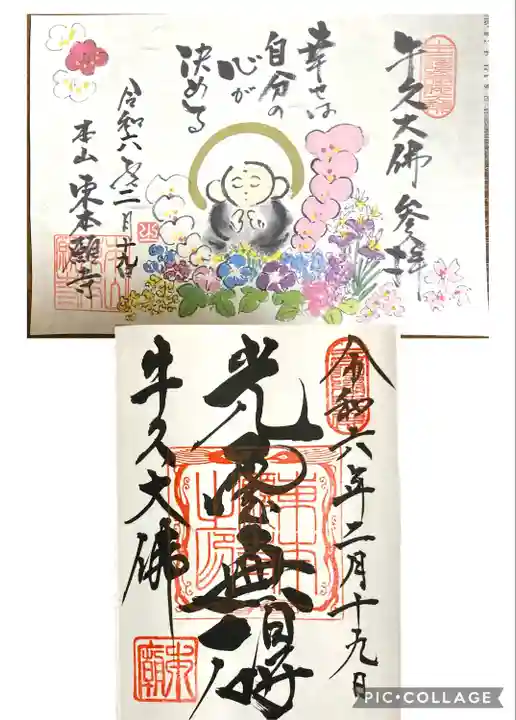 牛久大佛 参拝
幸せは
自分の
心が
決める
令和六年二月十九日
本山 東本願寺
令和六年二月十九日
光雲無碍
牛久大佛
PIC•COLLAGE